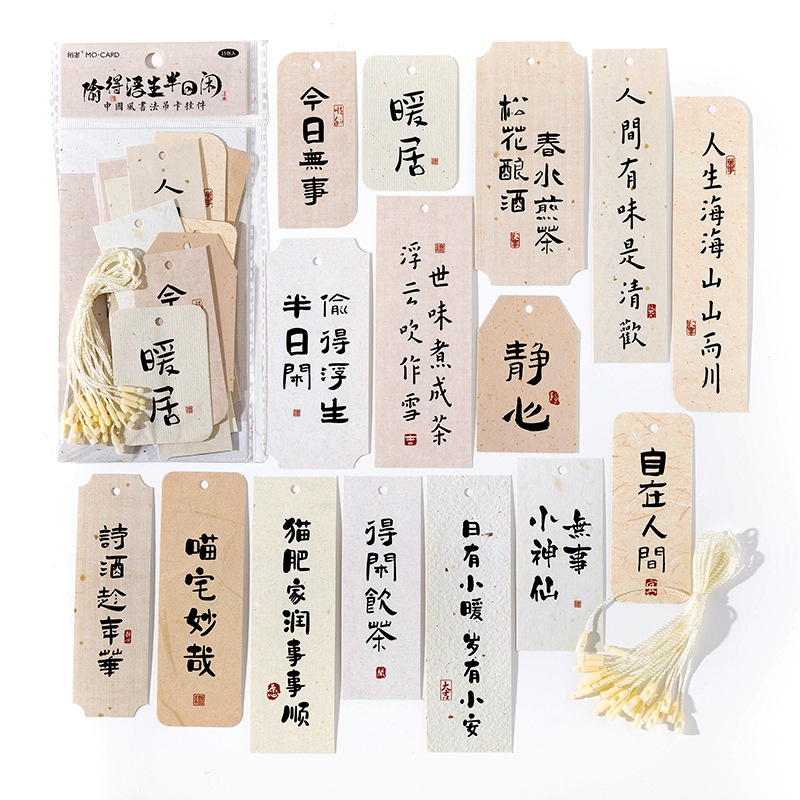 MO·CARD
15张入
偷得浮生半日闲
中國風書法吊卡挂件
人
今
暖居
今日無事
暖居
松花酿酒
春水煎茶
人間有味是清歡
人生海海山山而川
偷得浮生
半日閑
浮云吹作雪
世味煮成茶
吉
静心
自在人間
詩酒趁年華
喵宅妙哉
猫肥家润事事顺
得閑飲茶
日有小暖岁有小安
無事
小神仙